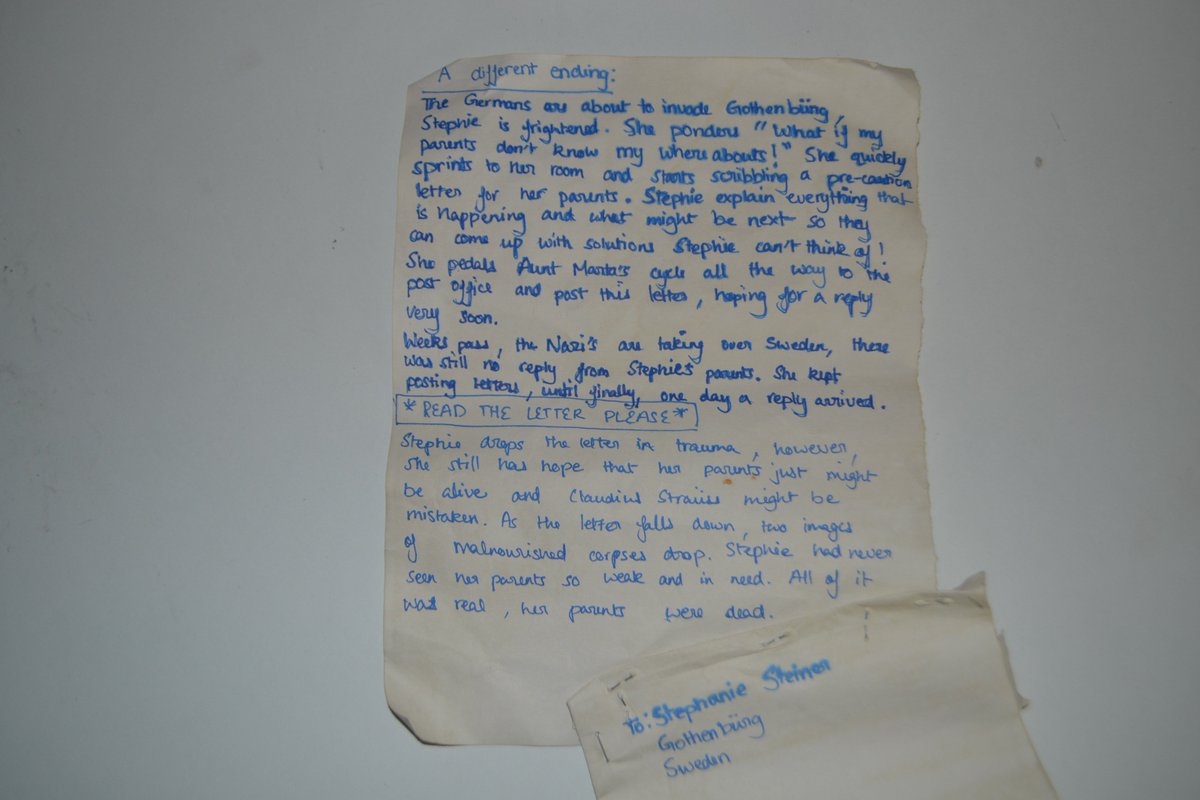 A different ending:
The Germans are about to invade Gothenbüng,
Stephie is frightened. She ponders "What if my
parents don't know my whereabouts!" She quickly
sprints to her room and starts scribbling a pre-caution
letter for her parents. Stephie explain everything that
is happening and what might be next so they
can come up with solutions Stephie can't think of!
She pedals Aunt Marta's cycle all the way to the
post office and post this letter, hoping for a reply
very soon.
Weeks pass, the Nazi's are taking over Sweden, there
was still no reply from Stephie's parents. She kept
posting letters, until finally, one day a reply arrived.
*READ THE LETTER PLEASE*
Stephie drops the letter in trauma, however,
she still has hope that her parents just might
be alive and Claudius Strauss might be
mistaken. As the letter falls down, two images
of malnourished corpses drop. Stephie had never
seen her parents so weak and in need. All of it
was real, her parents were dead.
To: Stephanie Steiner
Gothenbüng
Sweden